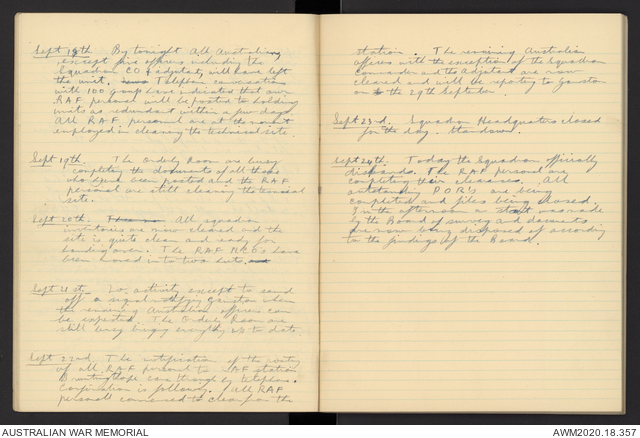 Sept 18th. By tonight All Australians
except five officers including the
Squadron CO & adjutant, will have left
the unit. Telephone conversation
with 100 Group have indicated that our
RAF personnel will be posted to holding
units as redundant within a few days.
All RAF personnel are at the moment
employed in cleaning the technical site
Sept 19th. The Orderly Room are busy
completing the documents of all those
who have been posted and the RAF
personnel are still cleaning the technical
site.
Sept 20th. All squadron
inventories are now cleared and the
site is quite clean and ready for
handing over. The RAF NCOs have
been moved into two huts.
Sept 21st. No activity except to send
off a signal notifying Gamston when
the remaining Australian officers can
be expected. The Orderly Room are
still busy bringing everything up to date.
Sept 22nd. The notification of the posting
of all RAF personnel to RAF station
Bruntingthorpe came through by telephone.
Confirmation is following. All RAF
personnel commenced to clear from the
station. The remaining Australian
officers with the exception of the Squadron
Commander and the Adjutant are now
cleared and will be reporting to Gamston
on the 29th September
Sept 23rd. Squadron Headquarters closed
for the day. Standown.
Sept 24th. Today the Squadron officially
disbands. The RAF personnel are
completing their clearances. All
outstanding P.O.R's are being
completed and files being closed.
In the afternoon a start was made
by the Board of survey and documents
are now being disposed of according
to the findings of the Board.
AUSTRALIAN WAR MEMORIAL
AWM2020.18.357